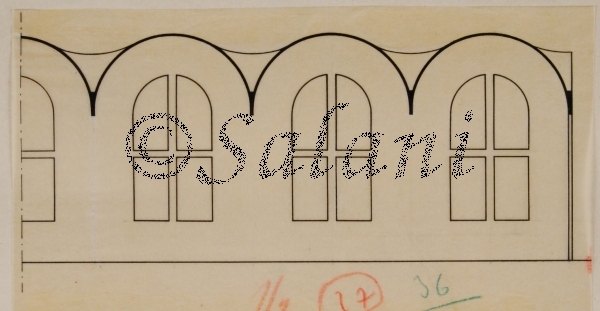 ©Salani
17 36